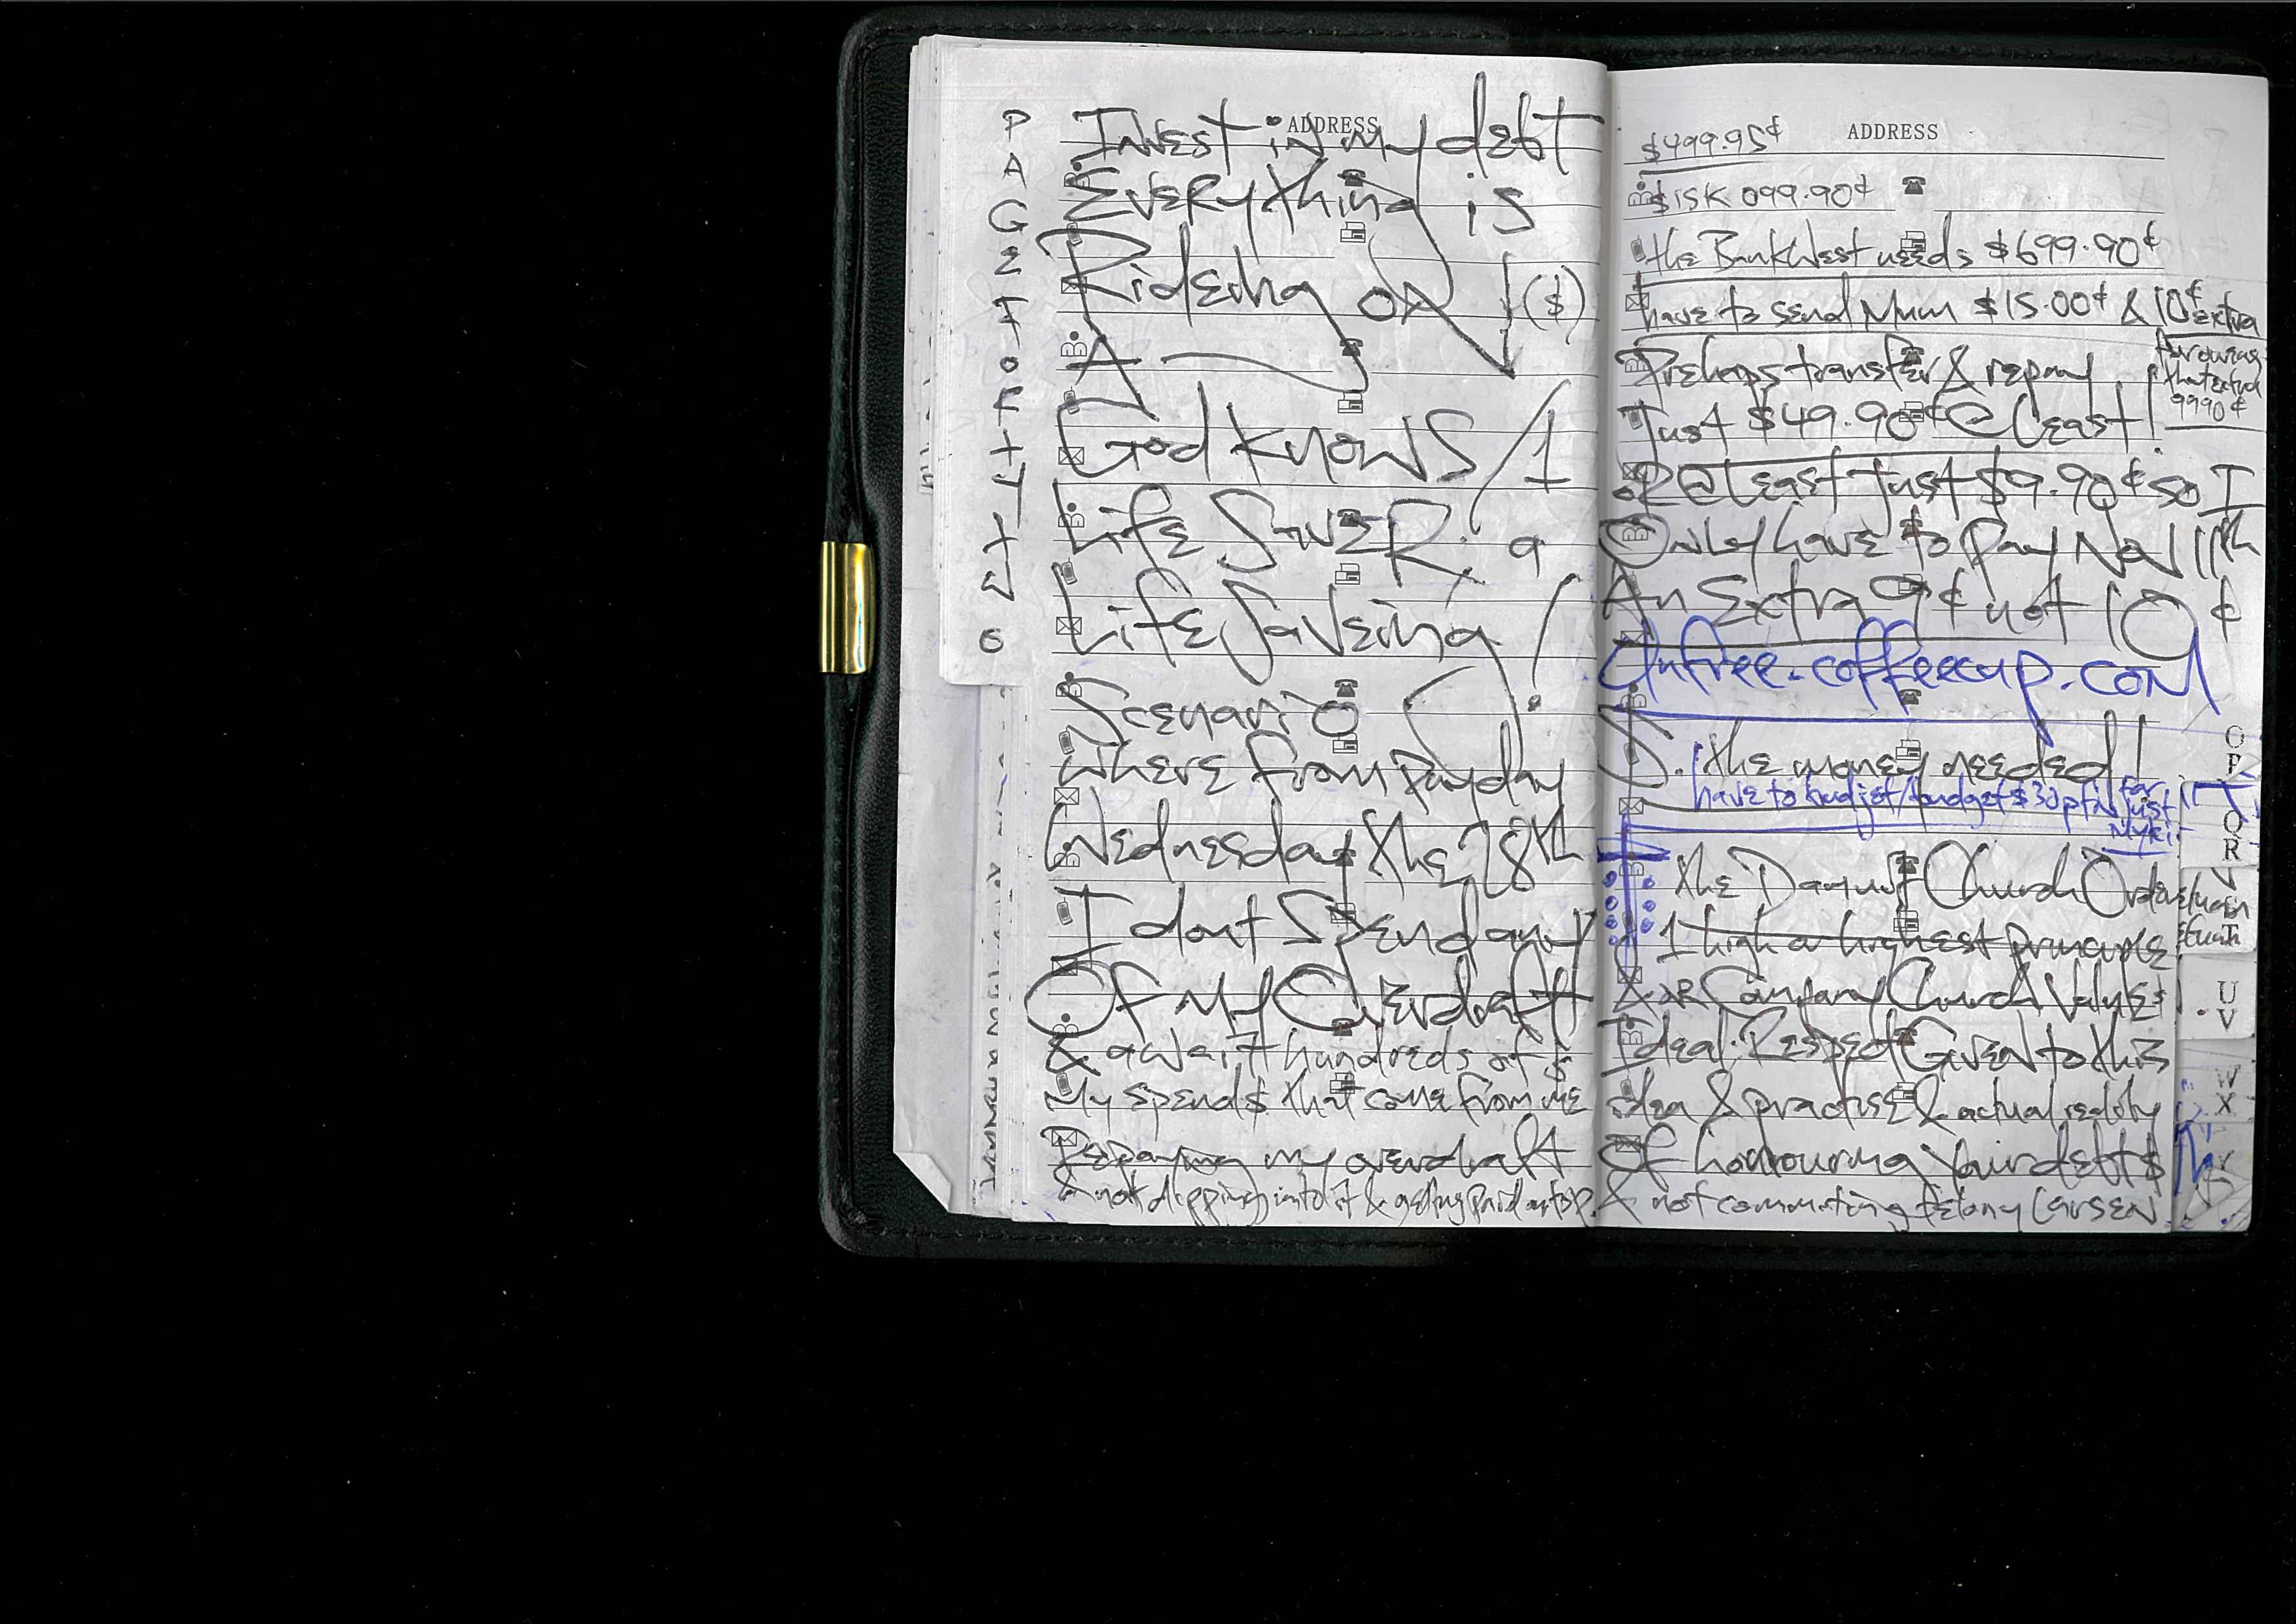 PAGE IOF FTY TΣO
ADDRESS
Invest in my debt
Everything is
Rideing on ($)
A
God knows 1
Life Saver: a
Life Saveing
Scenario
where from payday
Wednesday the 28th
I dont Spend any
Of my Overdraft
& await hundreds of $
My spend$ that come from me
Repaying my overdraft
& not dipping into it & getting paid ontop.
ADDRESS
$499.95¢
$15K 099.90¢
the BankWest needs $699.90¢
have to send Mum $15.00¢ & 10¢ extra
Prehaps transfer & repay
Just $49.90¢ @ least!
that extra
9990¢
OR @ least Just $9.90¢ so I
Only have to pay Nov 11th
An Extra 9¢ not 10¢
@nfree.coffeecup.com
S. the money needed!
have to budjet/budget $30 pfn for just
O
P
Q
R
the Church Order
1 high or highest principle
& OR Company Church Values
Ideal. Respect Given to this
idea & practise & actual reality
Of honouring your debt$
& not commiting felony larsen
U
V
W
X